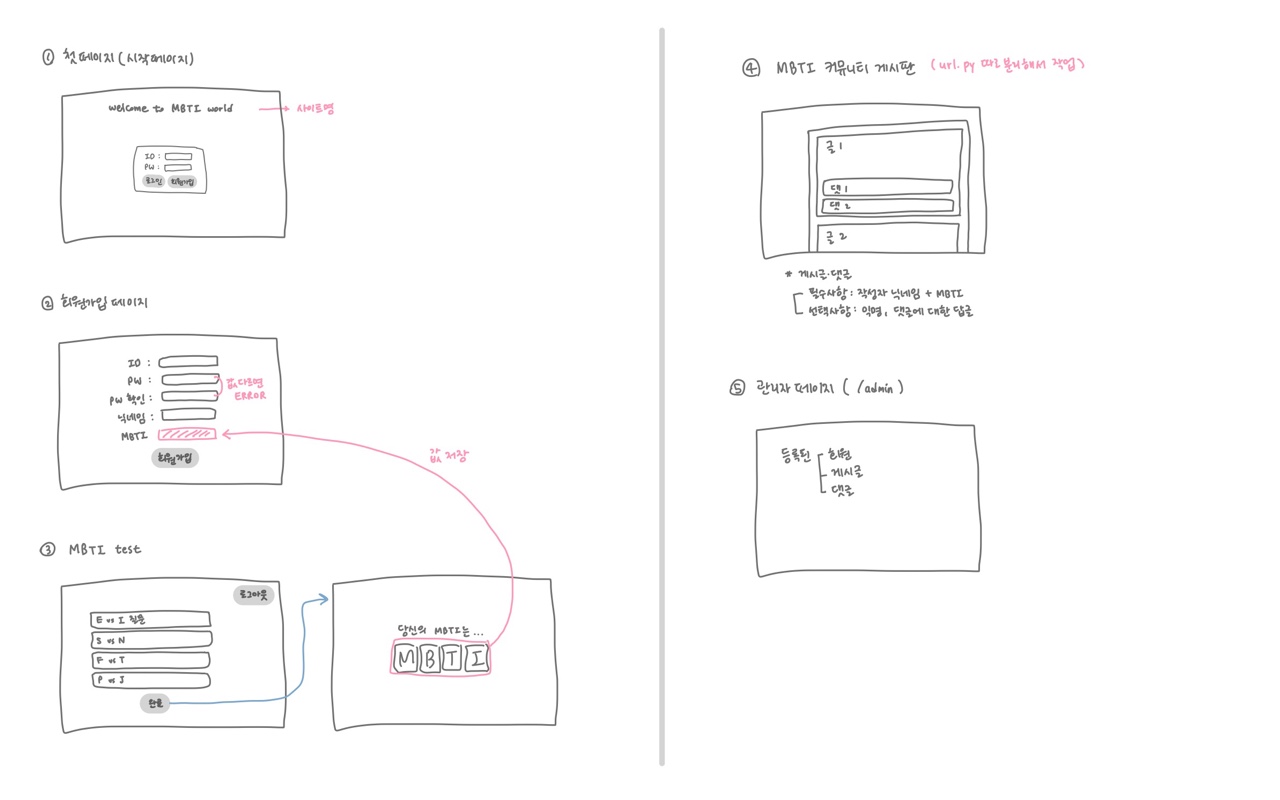 ① 첫 페이지 (시작페이지)
welcome to MBTI world
사이트명
ID :
PW :
로그인 회원가입
② 회원가입 페이지
ID :
PW :
PW 확인 :
값 다르면
ERROR
닉네임 :
MBTI
회원가입
값 저장
③ MBTI test
로그아웃
E vs I 질문
S vs N
F vs T
P vs J
완료
당신의 MBTI는 ...
M B T I
④ MBTI 커뮤니티 게시판 (url.py 따로 분리해서 작업)
글 1
댓 1
댓 2
글 2
* 게시글·댓글
필수사항 : 작성자 닉네임 + MBTI
선택사항 : 익명, 댓글에 대한 답글
⑤ 관리자 페이지 ( /admin )
등록된 회원
게시글
댓글